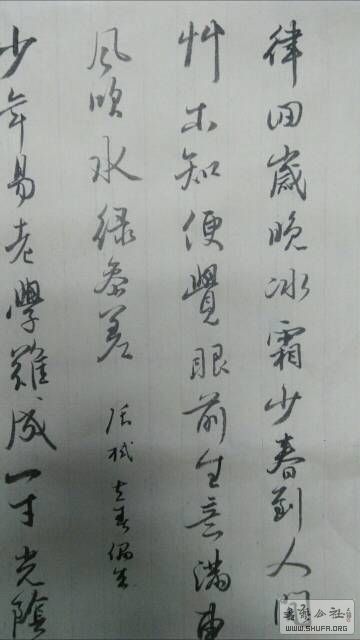 律回歲晚冰霜少春到人间
艸木知便覺眼前生意满東
風吹水绿参差
张栻 立春偶成
少年易老學難成一寸光陰
公社
WWW.SHUFA.ORG